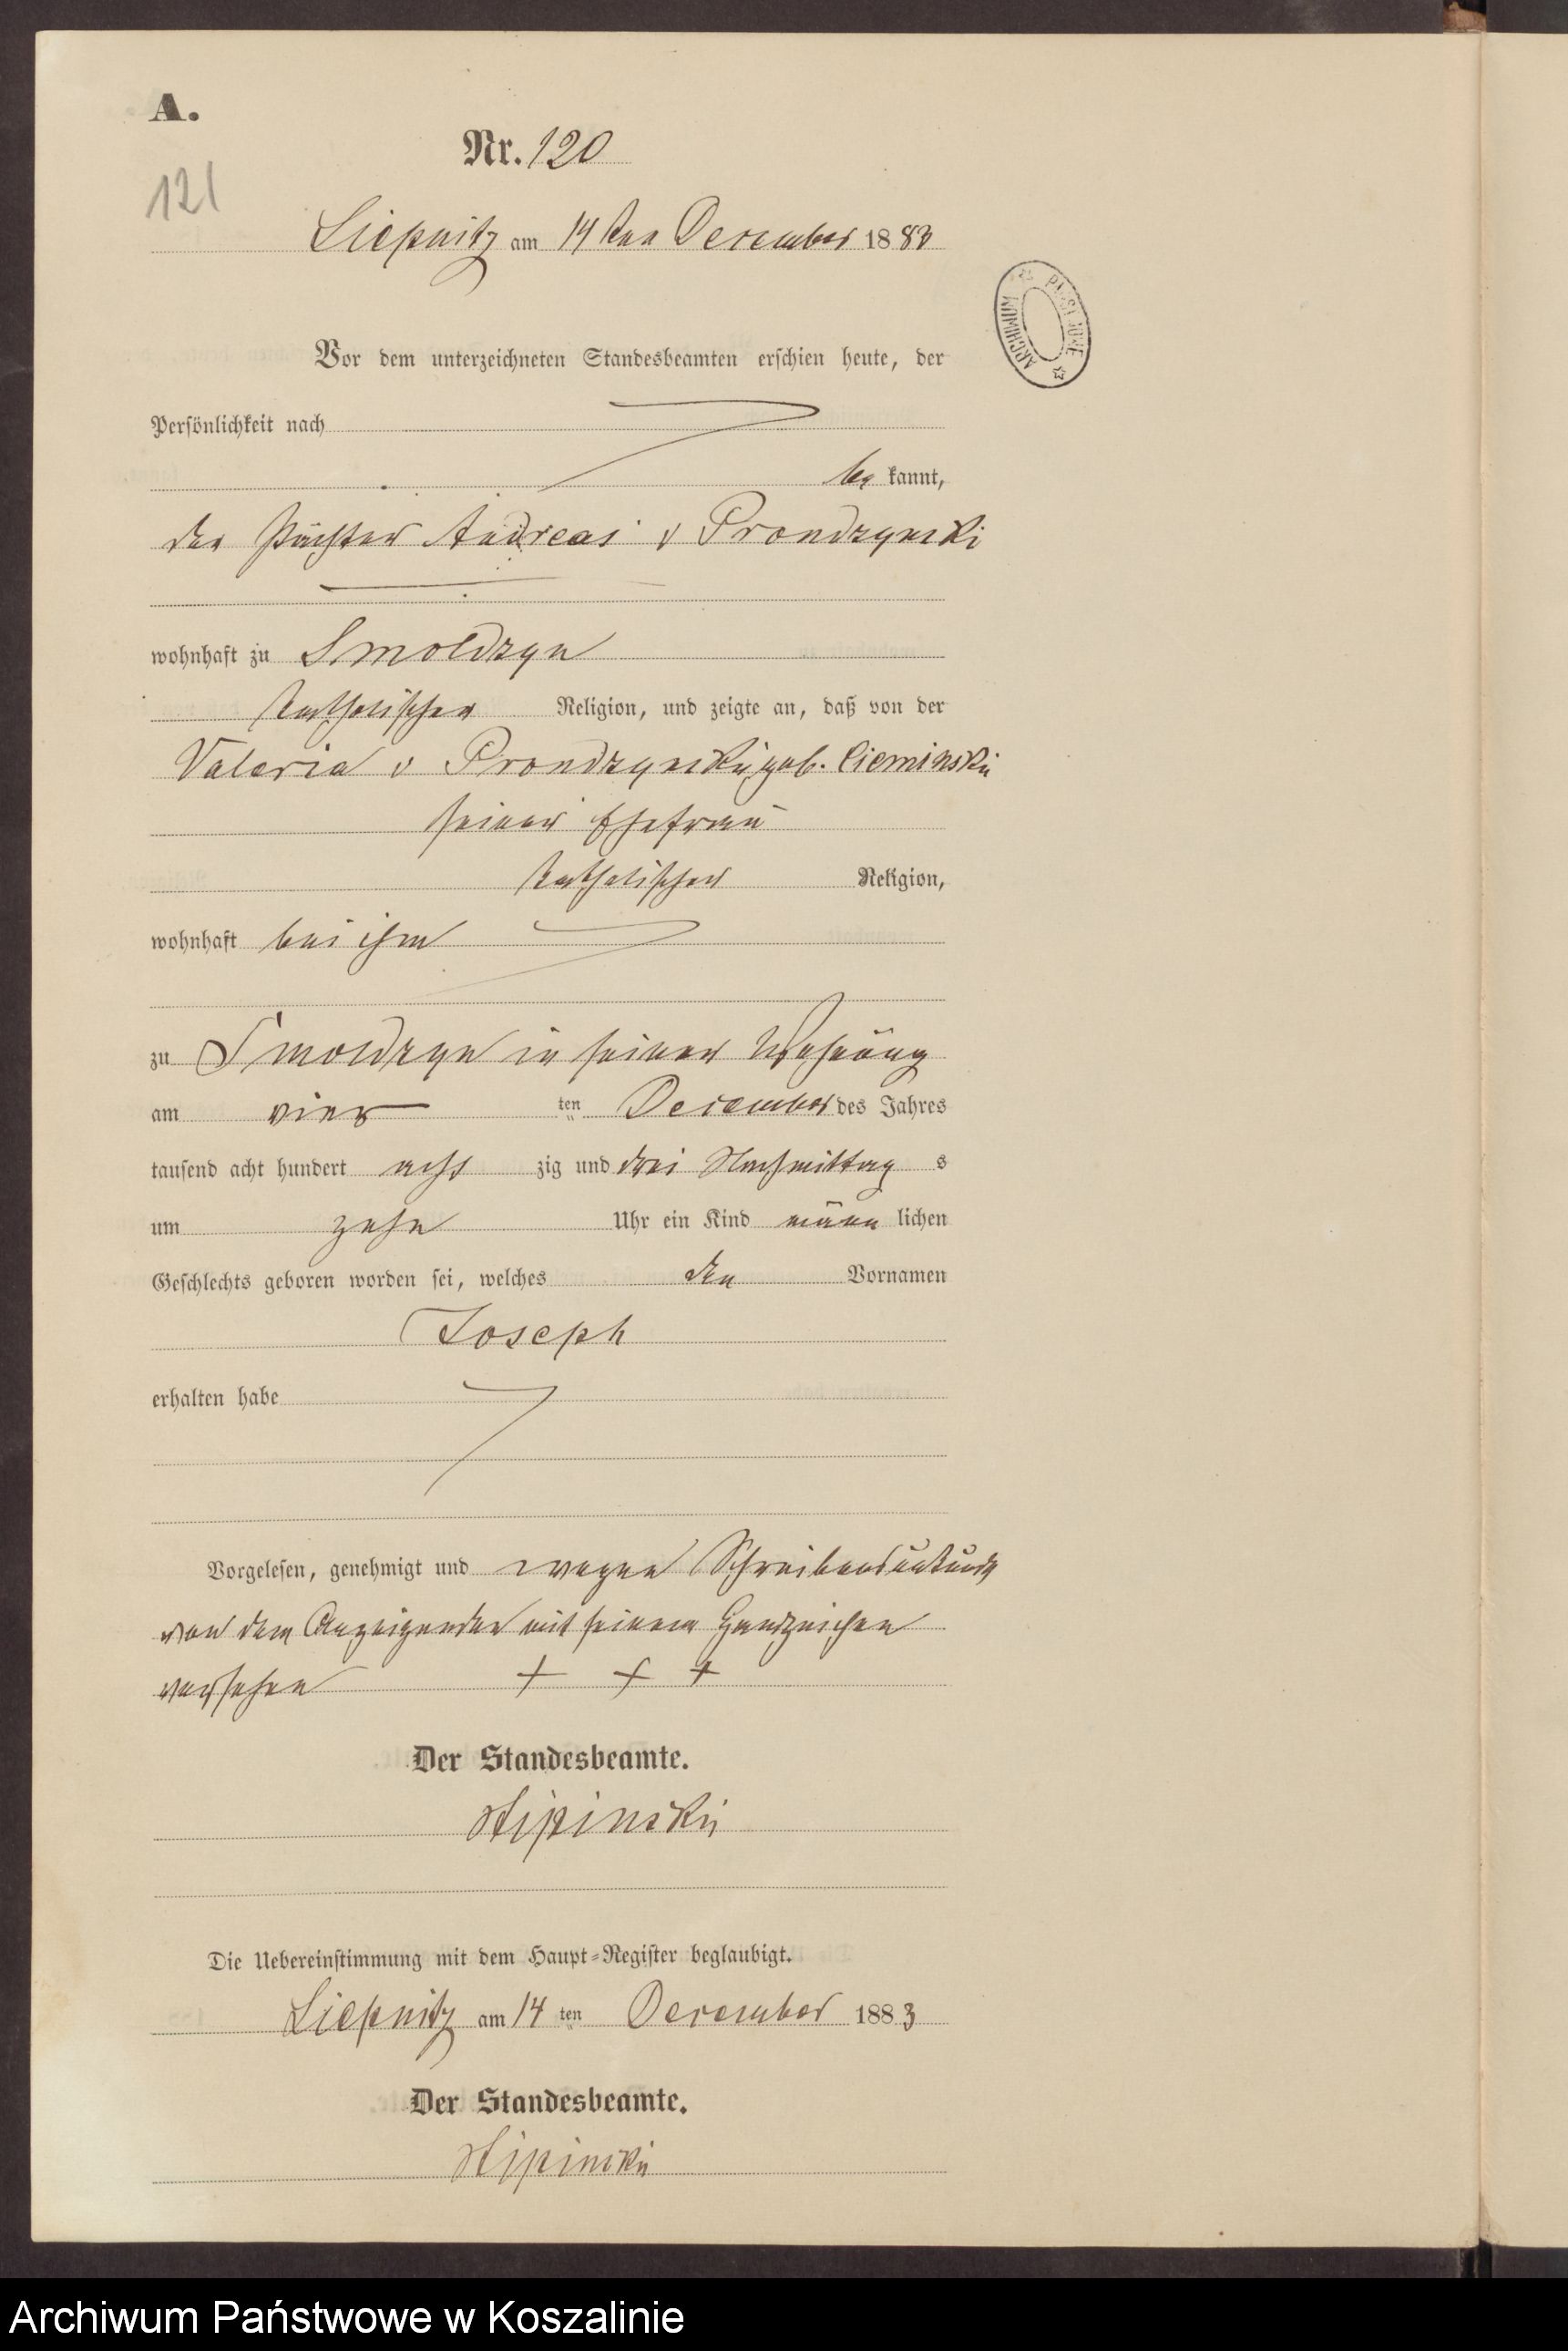 A.
Nr. 120
121
Liepnitz am 14ten December 1883
Vor dem unterzeichneten Standesbeamten erschien heute, der
Persönlichkeit nach
be kannt,
der Pächter Andreas v Prondzynski
wohnhaft zu Smoldzyn
katholischer Religion, und zeigte an, daß von der
Valeria v Prondzynski geb. Cieminski
seiner Ehefrau
katholischer Religion,
wohnhaft bei ihm
zu Smoldzyn in seiner Wohnung
am vier ten December des Jahres
tausend acht hundert acht zig und drei Nachmittag s
um zehn Uhr ein Kind männ lichen
Geschlechts geboren worden sei, welches den Vornamen
Joseph
erhalten habe
Vorgelesen, genehmigt und wegen Schreibensunkunde
von dem Anzeigenden mit seinem Handzeichen
versehen + + +
Der Standesbeamte.
Die Uebereinstimmung mit dem Haupt-Register beglaubigt.
Liepnitz am 14 ten December 1883
Der Standesbeamte.
Archiwum Państwowe w Koszalinie